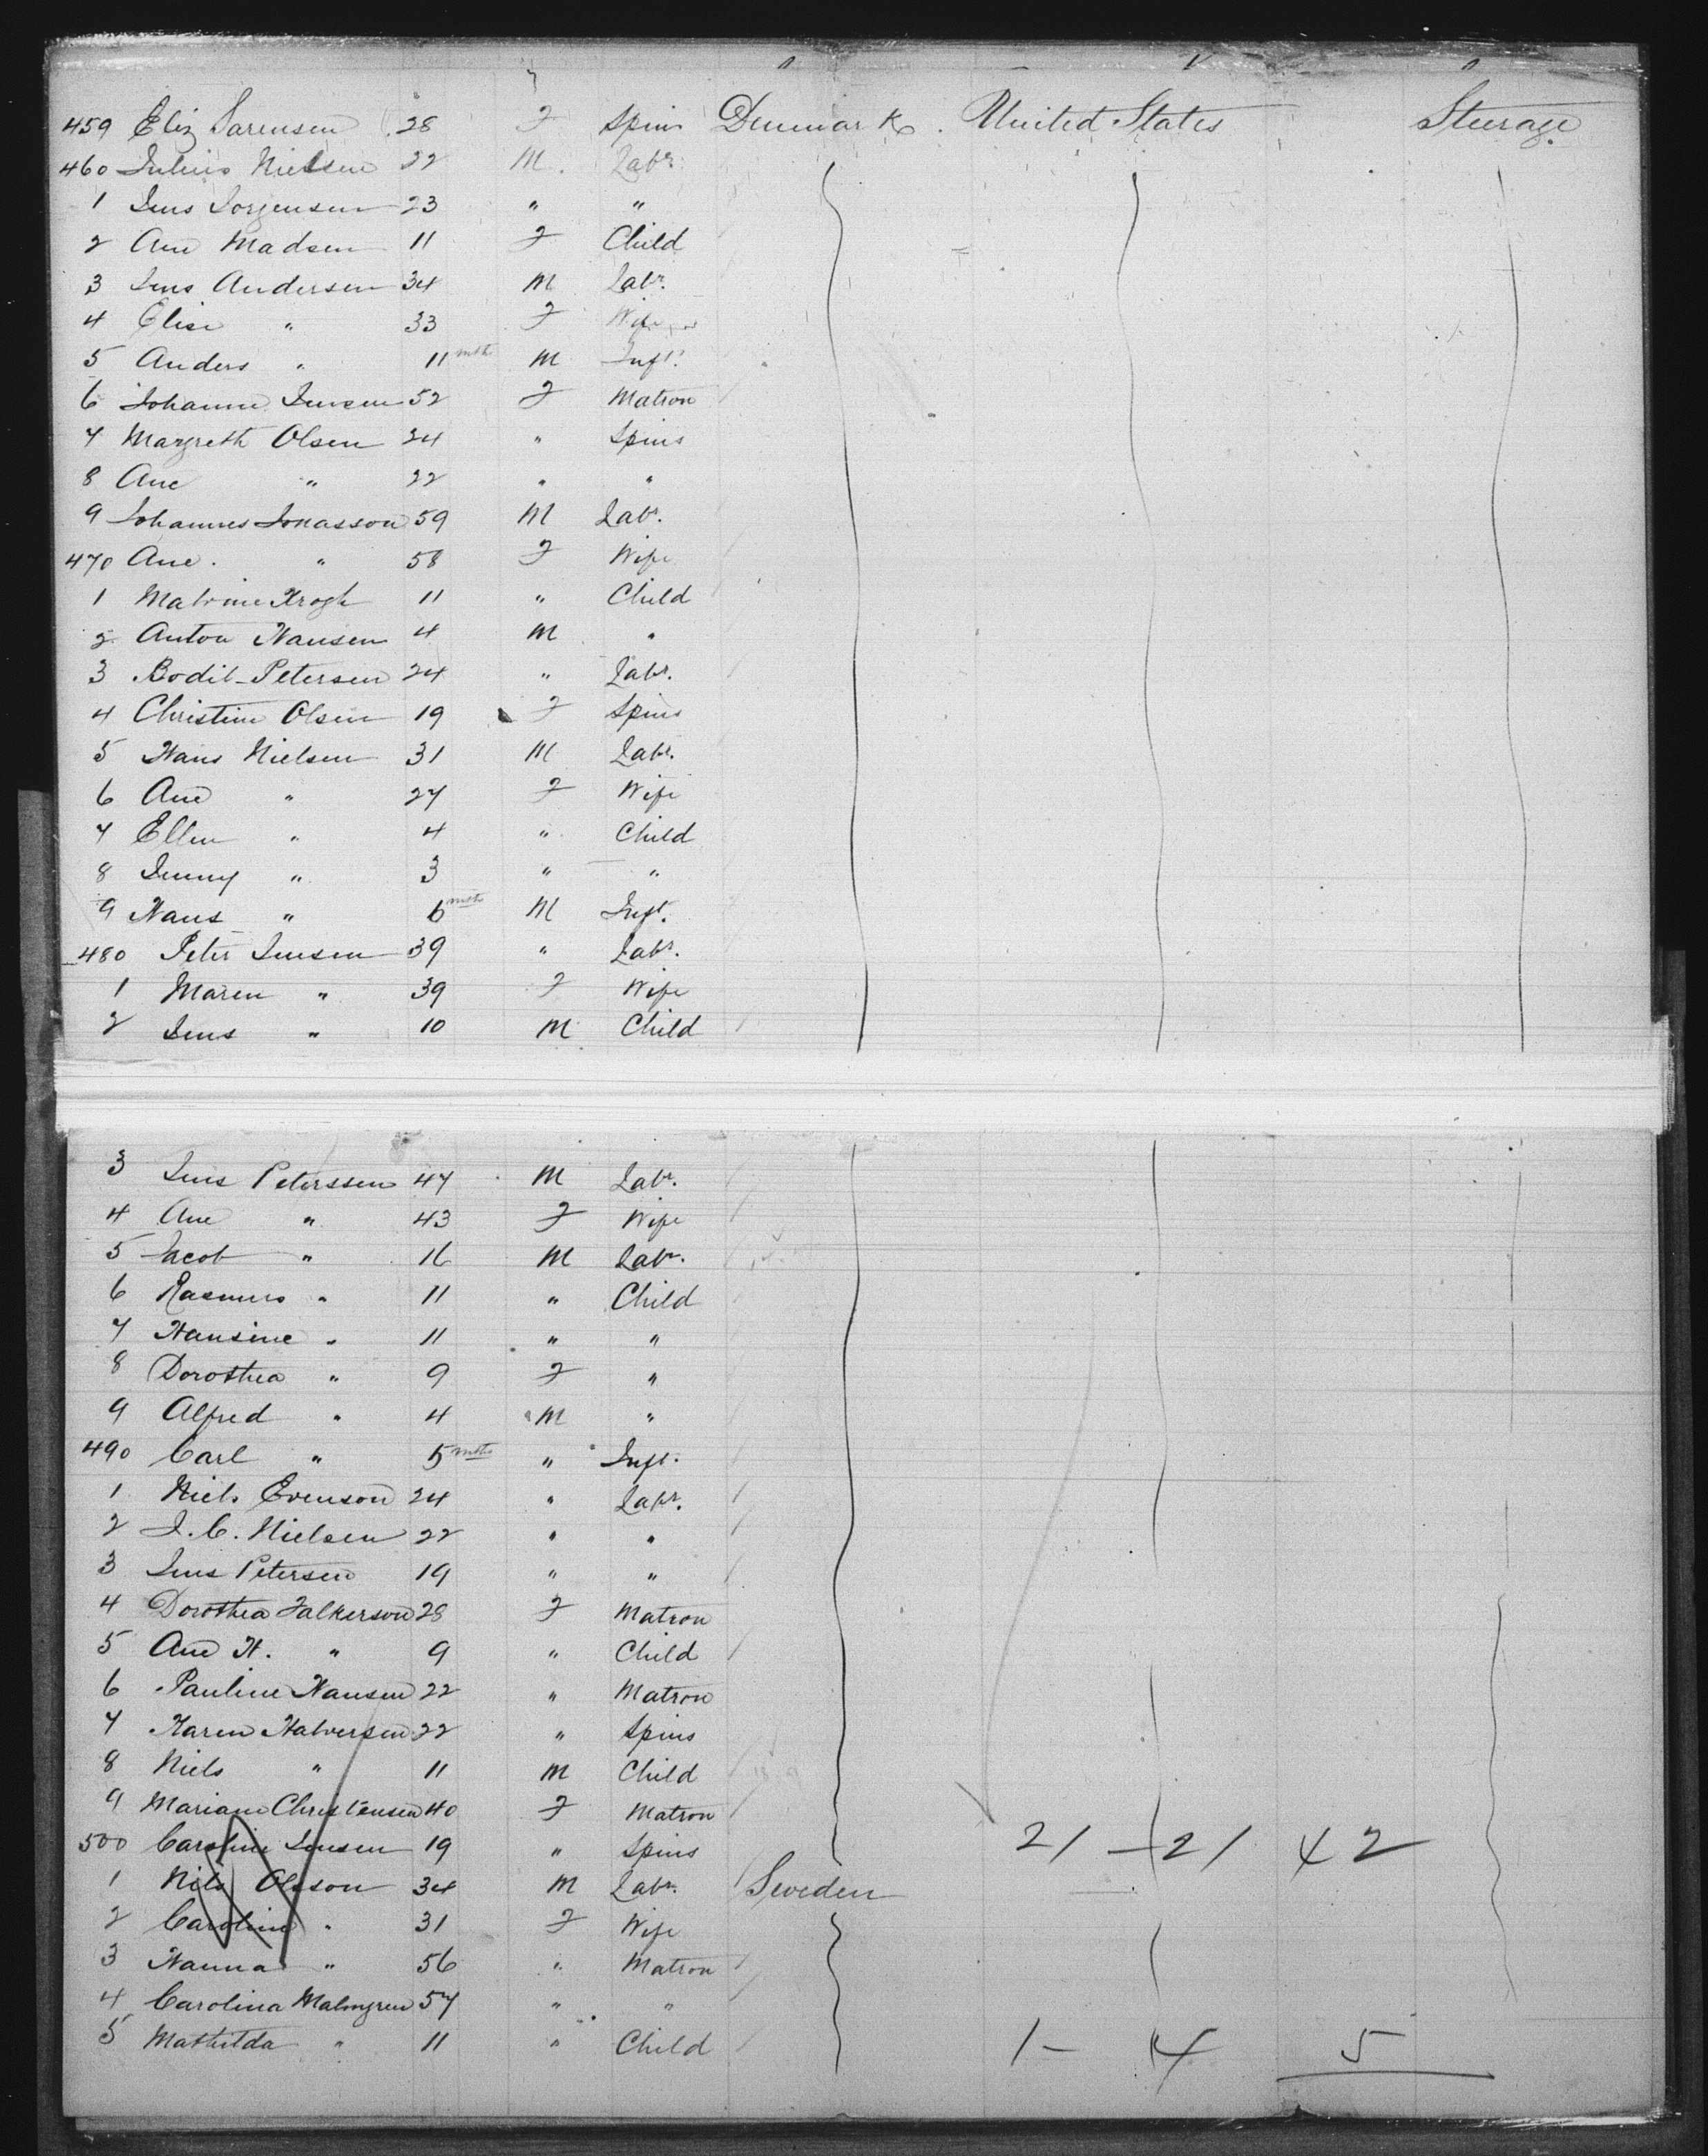 459 Eliz Sorensen 28 F Spins Denmark United States Steerage
460 Julius Nielsen 22 M Labr.
1 Jens Jorgensen 23 " "
2 Ane Madsen 11 F Child
3 Jens Andersen 34 M Labr.
4 Elise " 33 F Wife
5 Anders " 11 mths M Inft.
6 Johanne Jensen 52 F Matron
7 Margreth Olsen 24 " Spins
8 Ane " 22 " "
9 Johannes Jonasson 59 M Labr.
470 Ane " 58 F Wife
1 Malvine Krogh 11 " Child
2 Anton Hansen 4 M "
3 Bodil Petersen 24 " Labr.
4 Christine Olsen 19 F Spins
5 Hans Nielsen 31 M Labr.
6 Ane " 27 F Wife
7 Ellen " 4 " Child
8 Jenny " 3 " "
9 Hans " 6 mths M Inft.
480 Peter Jensen 39 " Labr.
1 Maren " 39 F Wife
2 Jens " 10 M Child
3 Jens Peterssen 47 M Labr.
4 Ane " 43 F Wife
5 Jacob " 16 M Labr.
6 Rasmus " 11 " Child
7 Hansine " 11 " "
8 Dorothea " 9 F "
9 Alfred " 4 M "
490 Carl " 5 mths " Inft.
1 Niels Evenson 24 " Labr.
2 J. C. Nielsen 22 " "
3 Jens Petersen 19 " "
4 Dorothea Falkerson 28 F Matron
5 Ane H. " 9 " Child
6 Pauline Hansen 22 " Matron
7 Karen Halversen 22 " Spins
8 Niels " 11 M Child
9 Mariane Christensen 40 F Matron
500 Caroline Jensen 19 " Spins 21 - 21 42
1 Nils Olsson 34 M Labr. Sweden
2 Carolina " 31 F Wife
3 Hanna " 56 " Matron
4 Carolina Malmgren 57 " "
5 Mathilda " 11 " Child 1 - 4 5